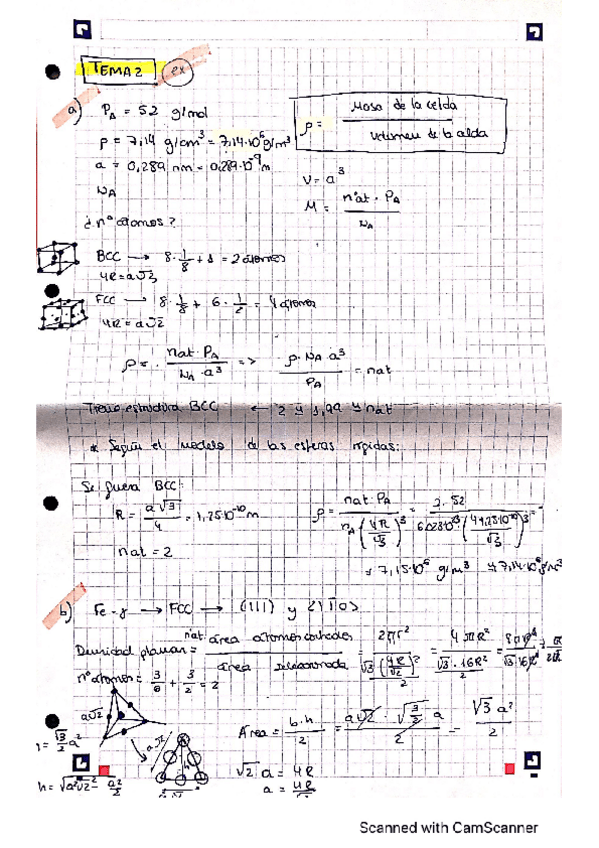 TEMA 2 ex
a) PA = 52 g/mol
ρ = 7,14 g/cm³ = 7,14·10⁶ g/m³
a = 0,289 nm = 0,289·10⁻⁹ m
NA
¿nº átomos?
ρ = Masa de la celda / Volumen de la celda
V = a³
M = nºat · PA / NA
BCC → 8·1/8 + 1 = 2 átomos
4R = a√3
FCC → 8·1/8 + 6·1/2 = 4 átomos
4R = a√2
ρ = nat·PA / NA·a³ => ρ·NA·a³ / PA = nat
Tiene estructura BCC ← 2 ≃ 1,99 ≃ nat
* Según el modelo de las esferas rígidas:
Se fuera BCC:
R = a√3 / 4 = 1,25·10⁻¹⁰ m
nat = 2
ρ = nat·PA / nA (4R/√3)³ = 2·52
≃ 7,15·10⁶ g/m³ ≃ 7,14·10⁶ g/m³
b) Fe-γ → FCC → (111) y
Densidad planar = nat. área átomos contados / área seleccionada = 2πr² / √3 (4R/√2)² / 2 = 4πR² / √3·16R² / 2
nº átomos = 3/6 + 3/2 = 2
a√2
Área = b·h / 2 = a√2 · √3/2 a / 2 = √3 a² / 2
√2 a = 4R
a = 4R
Scanned with CamScanner